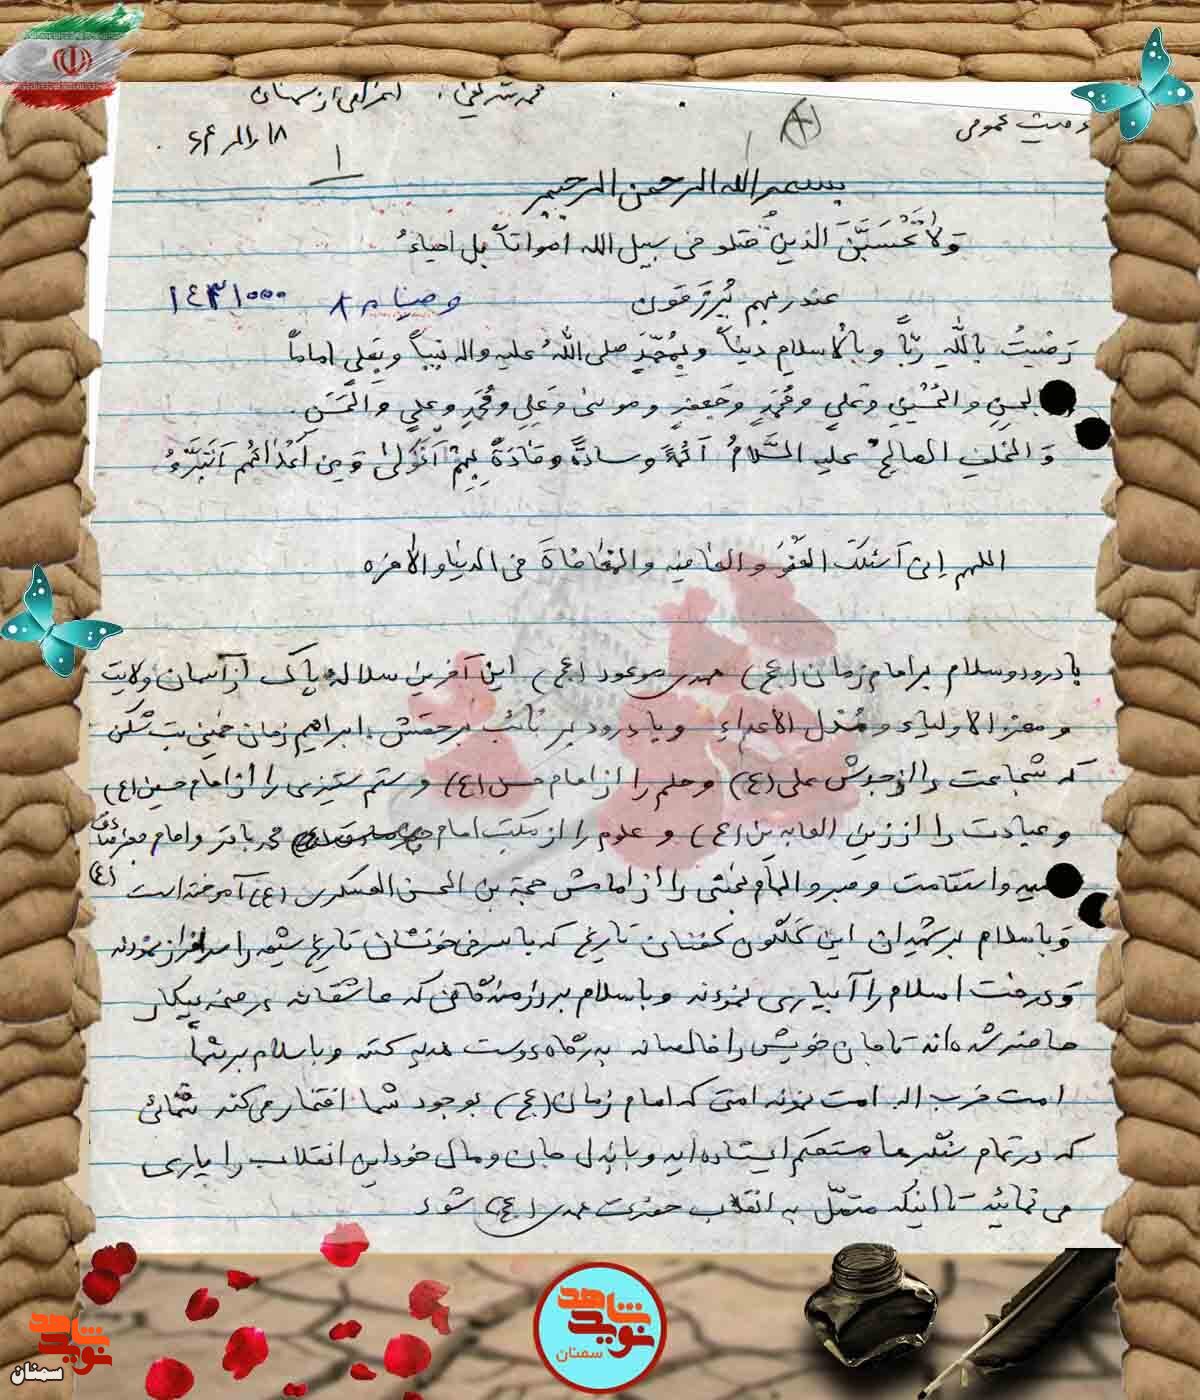 وصیت عمومی
محمد شریفی اعزامی از سمنان
۱
بسم الله الرحمن الرحیم
وَلا تَحْسَبَنَّ الذینَ قتلو فی سبیل الله امواتاً بل احیاءُ
عند ربهم یُرْزَقون
۱۴۳۱۰۰۰
رَضیْتُ باللّهِ رَبّاً وبالْاسلامِ دیناً وبِمُحَمَّدٍ صلی اللهُ علیه واله نبیاً وبِعَلیٍ اماماً
والحُسَیْنِ وَعَلیٍ ومُحَمَدٍ وَجَعفرٍ وموسیٰ وَعَلیٍ ومُحَمَدٍ وعلیٍ والحَسَنِ.
وَ الخَلَفِ الصالحِ علیه السَّلامُ اَئمةً وسادةً وقادَةً بِهِمْ اَتَوَلیٰ وَمِن اَعْدٰائهم اَتَبَرَّءُ
اللهم اِنی اَسئلک العَفْوَ والعافیه والمعافاةَ فی الدنیا والاخره
با درود و سلام بر امام زمان (عج) مهدی موعود (عج) این آخرین سلاله پاک از آسمان ولایت
و معز الاولیاء و مُذل الأعداء و با درود بر نائب برحقش ابراهیم زمان خمینی بت شکن
که شجاعت را از جدش علی (ع) و حلم را از امام حسن (ع) و ستم ستیزی را از امام حسین (ع)
و عبادت را از زین العابدین (ع) و علوم را از مکتب امام محمد باقر و امام جعفر صادق
(ع)
و استقامت و صبر و را از امامش حجة بن الحسن العسکری (عج) آموخته است
و با سلام بر شهیدان این گلگون کفنان تاریخ که با سرخی خونشان تاریخ شیعه را سرافراز نمودند
و درخت اسلام را آبیاری نمودند و با سلام بر رزمندگانی که عاشقانه در صحنه پیکار
حاضر شده اند تا جان خویش را خالصانه به درگاه دوست هدیه کنند و با سلام بر شما
امت حزب اله امت نمونه امتی که امام زمان (عج) بوجود شما افتخار می کند شمائی
که در تمام سنگرها مستحکم ایستاده اید و با بذل جان و مال خود این انقلاب را یاری
می نمائید تا اینکه متصل به انقلاب حضرت مهدی (عج) شود
نوید شاهد
سمنان
نوید شاهد
سمنان